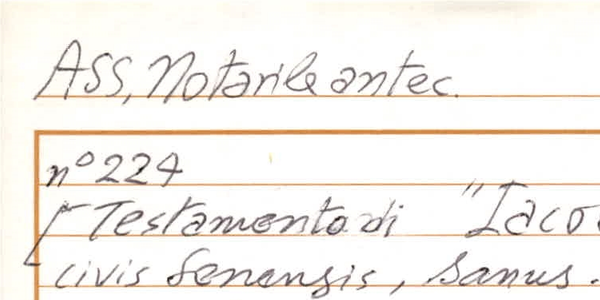 ASS, Notarile antec.
n° 224
[Testamento di "Iaco
civis Senensis, sanus.